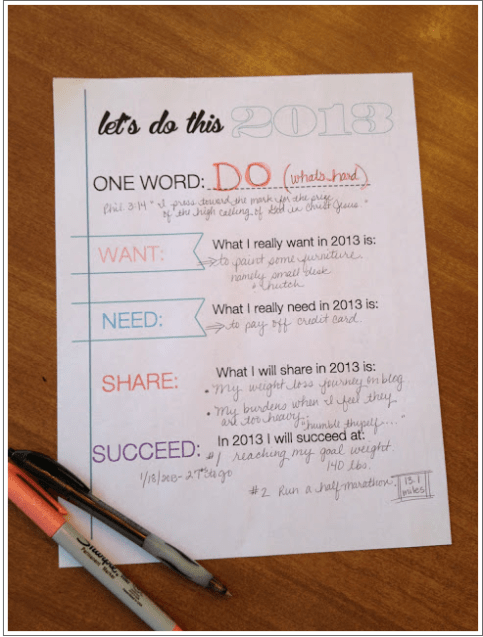 let's do this 2013
ONE WORD: DO (what's hard)
Phil 3:14 "I press toward the mark for the prize
of the high calling of God in Christ Jesus."
WANT: What I really want in 2013 is:
to paint some furniture
namely small desk
+ hutch
NEED: What I really need in 2013 is:
to pay off credit card.
SHARE: What I will share in 2013 is:
• My weight loss journey on blog
• My burdens when I feel they
are too heavy.
"humble thyself...."
SUCCEED: In 2013 I will succeed at:
#1 reaching my goal weight
1/18/2013- 27 lbs to go 140 lbs.
#2 Run a half-marathon. 13.1
miles
Sharpie